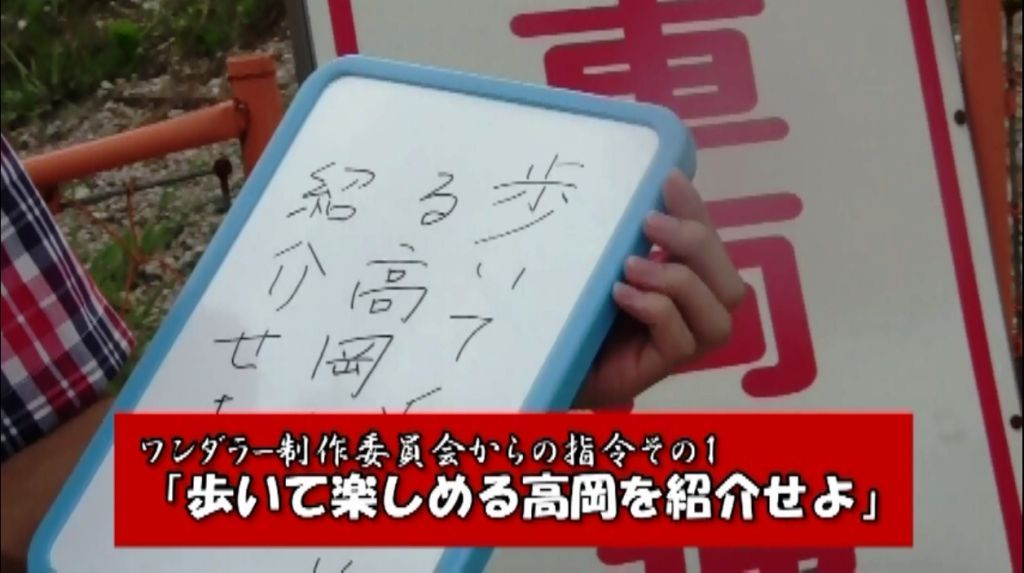 歩いて
る高岡
紹介せ
車両
ワンダラー制作委員会からの指令その1
「歩いて楽しめる高岡を紹介せよ」